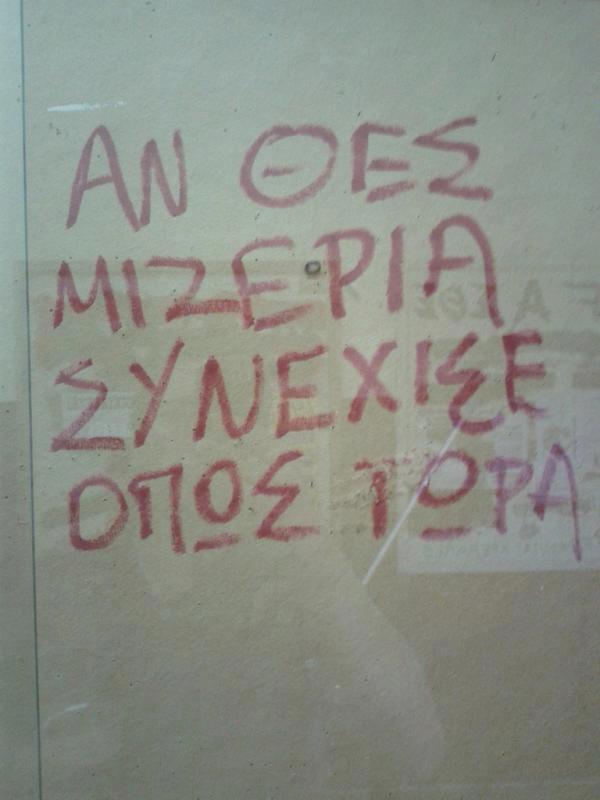 ΑΝ ΘΕΣ
ΜΙΖΕΡΙΑ
ΣΥΝΕΧΙΣΕ
ΟΠΩΣ ΤΩΡΑ